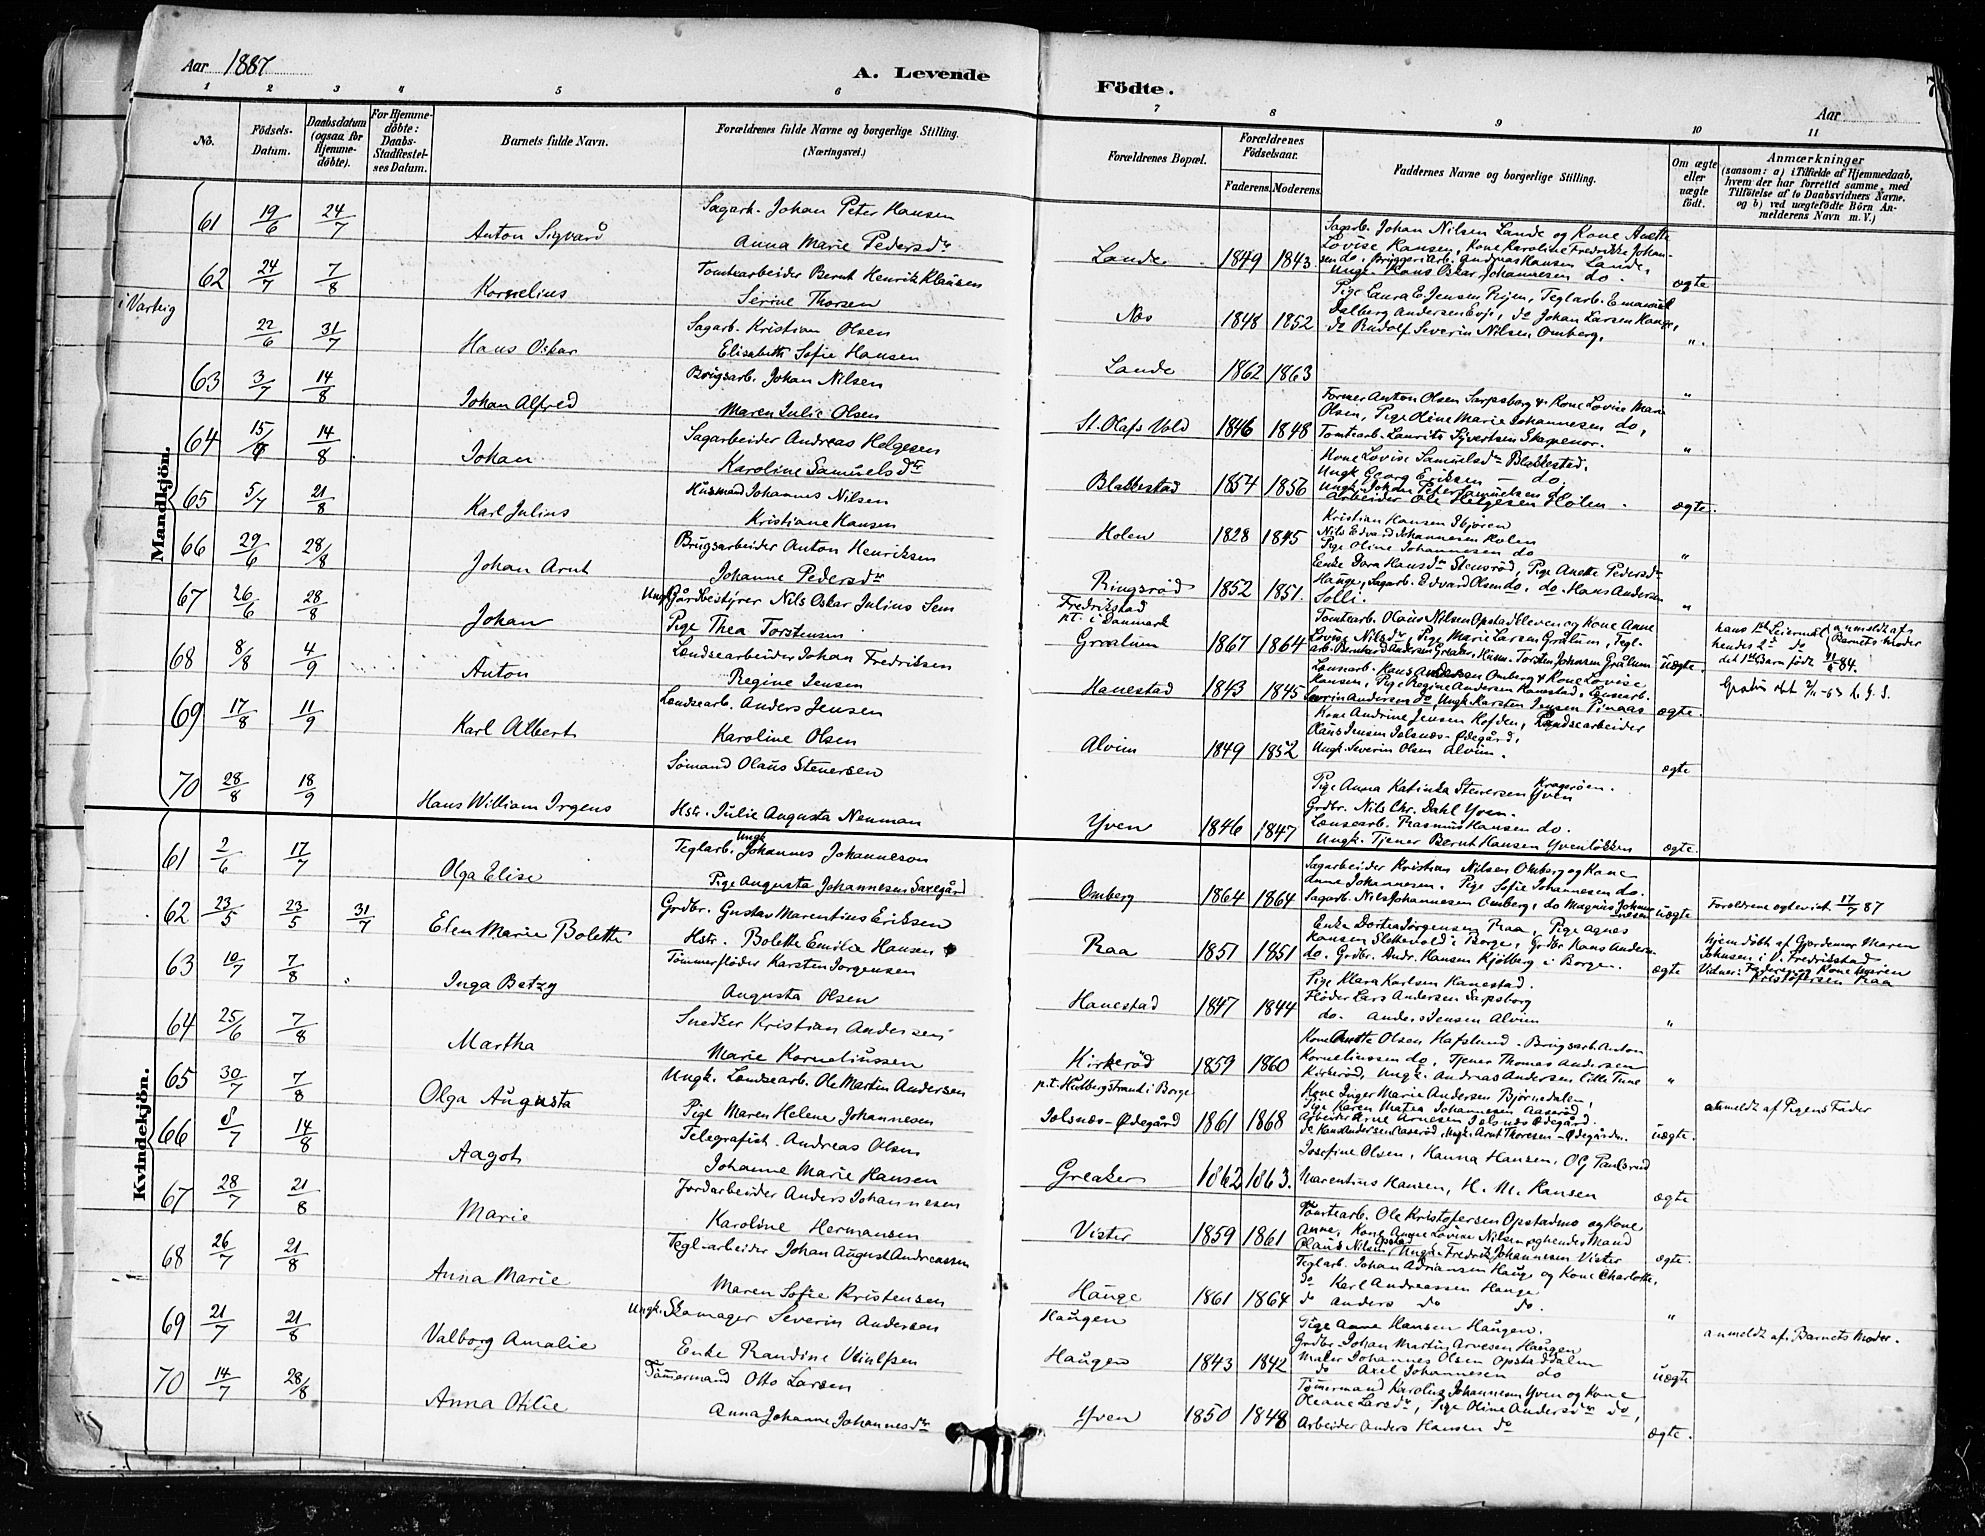 Aar 1887
A. Levende
Födte.
Aar
7
1 2 3 4 5 6 7 8 9 10 11
No.
Födsels-Datum.
Daabsdatum (ogsaa for Hjemme-döbte).
For Hjemme-döbte: Daabs-Stadfæstel-ses Datum.
Barnets fulde Navn.
Forældrenes fulde Navne og borgerlige Stilling.
(Næringsvei.)
Forældrenes Bopæl.
Forældrenes Födselsaar.
Faderens. Moderens.
Faddernes Navne og borgerlige Stilling.
Om ægte eller uægte födt.
Anmærkninger
(saasom: a) i Tilfælde af Hjemmedaab,
hvem der har forrettet samme, med
Tilföielse af to Daabsvidners Navne,
og b) ved uægtefödte Börn An-
melderens Navn m. V.)
Mandkjön.
61 19/6 24/7 Anton Sigvard
Sagarb. Johan Peter Hansen
Anna Marie Pedersdr
Lande 1849 1843 ægte
Sagarb. Johan Nilsen Lande og Kone Anette
Lovise Hansen, Kone Karoline Fredrikke Johan-
sen do, Andreas Hansen Lande,
Ungk. Hans Oskar Johannesen do.
62 24/7 7/8 Kornelius
Tomtearbeider Bernt Henrik Klausen
Serine Thorsen
Næs 1848 1852 "
Pige Laura E. Jensen, Teglarb. Emanuel
Dalberg Andersen Evje, do Johan Larsen Hauge,
do Rudolf Severin Nilsen, Omberg.
i Varteig
22/6 31/7 Hans Oskar
Sagarb. Kristian Olsen
Elisabeth Sofie Hansen
Lande 1862 1863 "
63 3/7 14/8 Johan Alfred
Brugsarb. Johan Nilsen
Maren Julie Olsen
St. Olafs Vold 1846 1848 "
Former Anton Olsen Sarpsborg & Kone Lovise Marie
Olsen, Pige Oline Marie Johannesen do,
Tomtearb. Laurits Syvertsen Skapenor.
64 15/7 14/8 Johan
Sagarbeider Andreas Helgesen
Karoline Samuelsdr
Blakkestad 1854 1856 ægte.
Kone Lovise Samuelsdr Blakkestad.
Ungk Georg Eriksen - do.
Ungk. Johan Peter Samuelsen do
Arbeider Ole Helgesen Holen.
65 5/7 21/8 Karl Julius
Husmand Johannes Nilsen
Kristiane Hansen
Holen 1828 1845 "
Kristian Hansen
Nils Edvard Johannesen Holen
Pige Oline Johannesen do
66 29/6 28/8 Johan Arnt
Brugsarbeider Anton Henriksen
Johanne Pedersdr
Ringsrød 1852 1851. "
Enke Dora Hansdr Stensrød, Pige Anette Pedersdr
Hauge, Sagarb. Edvard Olsen do, do. Hans Andersen
Solli.
67 26/6 28/8 Johan
Ungk. Gårdbestyrer Nils Oskar Julius Sem
Pige Thea Torstensen
Fredrikstad
pt. i Danmark
Grålum 1867 1864 uægte
Tomtearb. Olaus Nilsen Opstad Eleven og Kone Anne
Lovise Nilsdr, Pige Marie Larsen Grålum, Tegl-
arb. Bernhard Andersen Greaker, Husm. Torsten Johnsen Grålum
hans 1ste Leiermål anmeldt af
hendes 2det do Barnets Moder
det 1ste Barn født 84.
68 8/8 4/9 Anton
Lændsearbeider Johan Fredriksen
Regine Jensen
Hanestad 1843 1845 ægte.
Lænsarb. Hans Andersen Omberg & Kone Lovise
Hansen, Pige Regine Andersen Hanestad, Lænsearb.
Severin Andersen do, Ungk. Karsten Jensen Pinaas
69 17/8 11/9 Karl Albert
Lændsearb. Anders Jensen
Karoline Olsen
Alvim 1849 1852 ægte
Kone Andrine Jensen Hofden, Lændsearbeider
Claus Jensen Jelsnæs-Ødegård,
Ungk. Severin Olsen Alvim.
70 28/8 18/9 Hans William Irgens
Sømand Olaus Stenersen
Hstr. Julie Augusta Neuman
Yven 1846 1847 ægte.
Pige Anna Katinka Stenersen Yven
Grdbr. Nils Chr. Dahl Yven.
Lænsearb. Rasmus Hansen do.
Ungk. Tjener Bernt Hansen Yvenløkken
Kvindekjön.
61 2/6 17/7 Olga Elise
Teglarb. Ungk Johannes Johannesen
Pige Augusta Johannesen Saxegård
Omberg 1864 1864 uægte
Sagarbeider Kristian Nilsen Omberg og Kone
Anne Johannesen. Pige Sofie Johannesen do.
Sagarb. Nils Johannesen Omberg, do Magnus Johannesen
Forældrene egteviet 17/7 87
62 23/5 23/5 31/7 Elen Marie Bolette
Grdbr. Gustav Marentius Eriksen
Hstr. Bolette Emilie Hansen
Raa 1851 1851 ægte
Enke Dortea Jørgensen Raa, Pige Agnes
Hansen Slettevold i Borge, Grdbr Hans Andersen
do. Grdbr. Andr. Hansen Kjølberg i Borgen.
hjemdøbt af Gjordemor Maren
Johnsen i V. Fredrikstad
Vidner: Faderen og Kone Maren
Kristofersen Raa
63 10/7 7/8 Inga Betzy
Tømmerfløder Karsten Jørgensen
Augusta Olsen
Hanestad 1847 1844 "
Pige Klara Karlsen Hanestad.
Fløder Lars Andersen Sarpsborg
do. Anders Jensen Alvim
64 25/6 7/8 Martha
Snedker Kristian Andersen
Marie Korneliussen
Kirkerød 1859 1860 "
Kone Anette Olsen Hafslund. Brugsarb. Anton
Korneliussen do, Tjener Thomas Andersen
Kirkerød, Ungk. Andreas Andersen Lille Tune
65 30/7 7/8 Olga Augusta
Ungk. Lændsearb. Ole Martin Andersen
Pige Maren Helene Johannesen
p.t. Hulbergstrand i Borge
Jelsnæs-Ødegård 1861 1868 uægte.
Kone Inger Marie Andersen Bjørnedalen,
Pige Karen Matea Johannesen Aaserød
Arbeider Arne Arnesen Jelsnæs Ødegård.
do Hans Andersen Aaserød, Ungk. Arnt Thoresen - Ødegården.
anmeldt af Pigens Fader
66 8/7 14/8 Aagot
Telegrafist. Andreas Olsen
Johanne Marie Hansen
Greaker 1862 1863. ægte
Josefine Olsen, Hanna Hansen, O G Paulsrud
Marentius Hansen, H. M. Hansen
67 28/7 21/8 Marie
Jordarbeider Anders Johannesen
Karoline Hermansen
Vister 1859 1861 ægte.
Tomtearb. Ole Kristofersen Opstadmo og Kone
Anne, Kone Anne Lovise Nilsen og hendes Mand
Olaus Nilsen Opstad, Ungk. Fredrik Johannesen Vister
68 26/7 21/8 Anna Marie
Teglarbeider Johan August Andreassen
Maren Sofie Kristensen
Hauge 1861 1864 "
Teglarb. Johan Adriansen Hauge og Kone Charlotte,
do Karl Andreassen Hauge
do Anders do do.
69 21/7 21/8 Valborg Amalie
Ungk. Skomager Severin Andersen
Enke Randine Ulvilfsen
Haugen
Haugen 1843 1842 uægte
Pige Anne Hansen Haugen.
Grdbr. Johan Martin Arvesen Haugen
Maler Johannes Olsen Opstaddalen
do Axel Johannesen do
anmeldt af Barnets Moder.
70 14/7 28/8 Anna Otilie
Tømmermand Otto Larsen
Anna Johanne Johannesdr
Yven 1850 1848 ægte.
Tømmermand Karolius Johannesen Yven og Kone
Oleane Larsdr, Pige Oline Andersdr do,
Arbeider Anders Hansen do